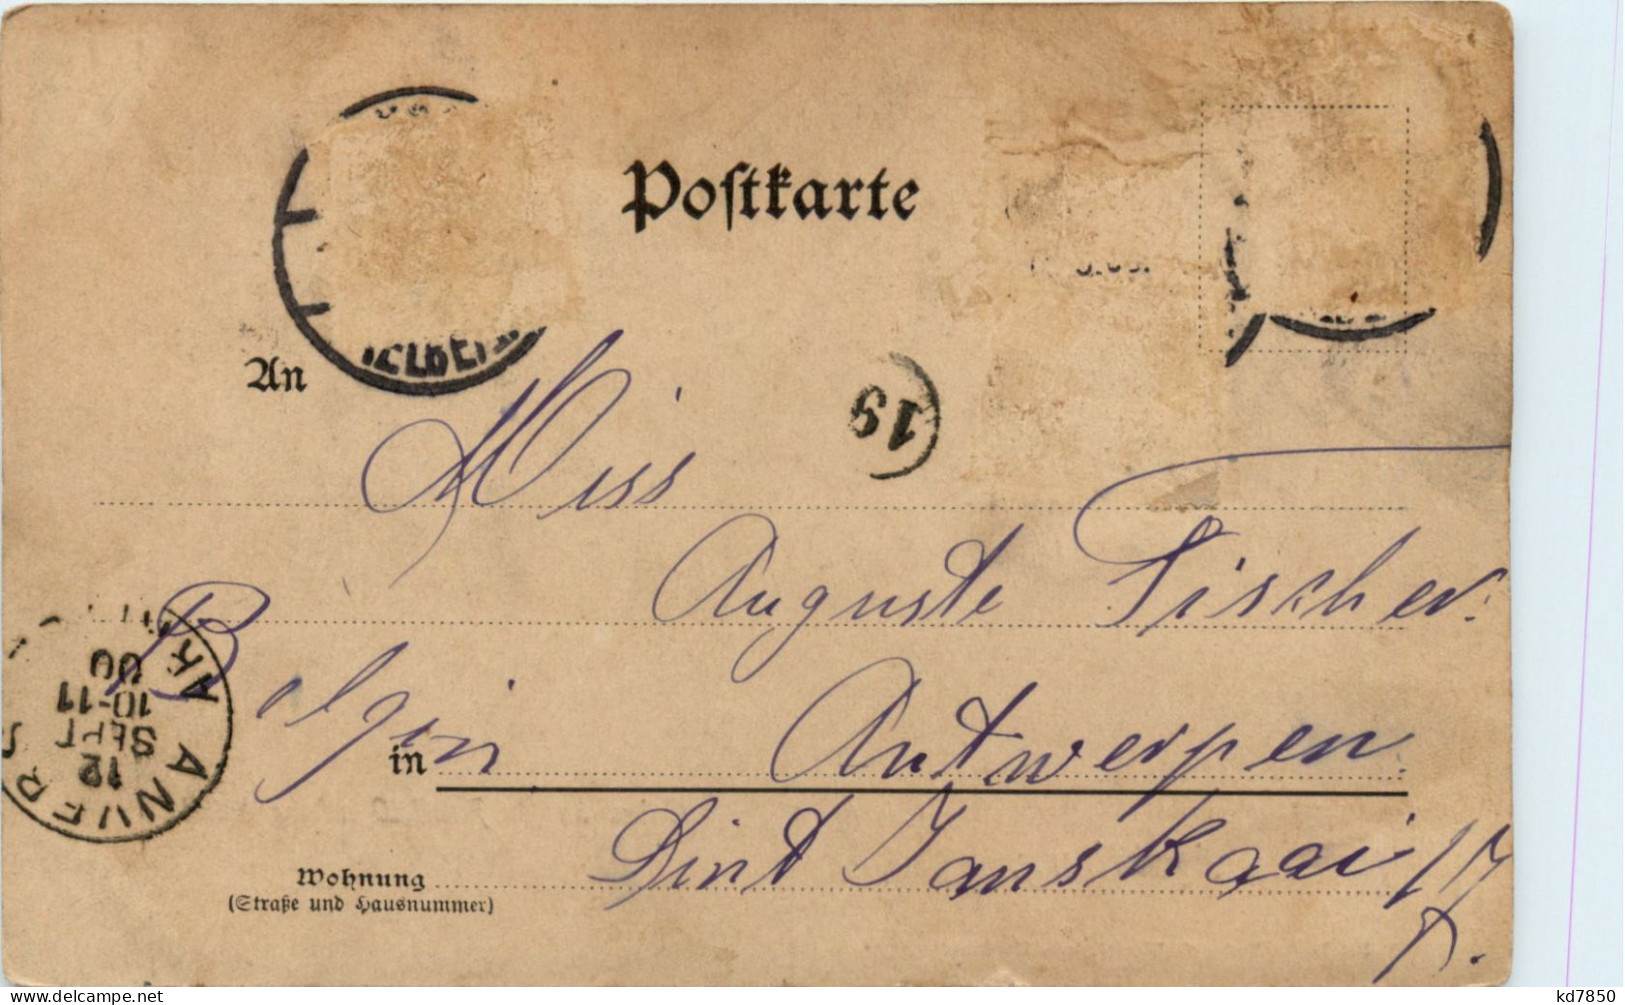 Postkarte
An
19
Miss
Auguste Fischer.
Belgien
in Antwerpen.
Sint Janskaai 17
Wohnung
(Straße und Hausnummer)
ANVERS
12
SEPT
10-11
00
kd7850